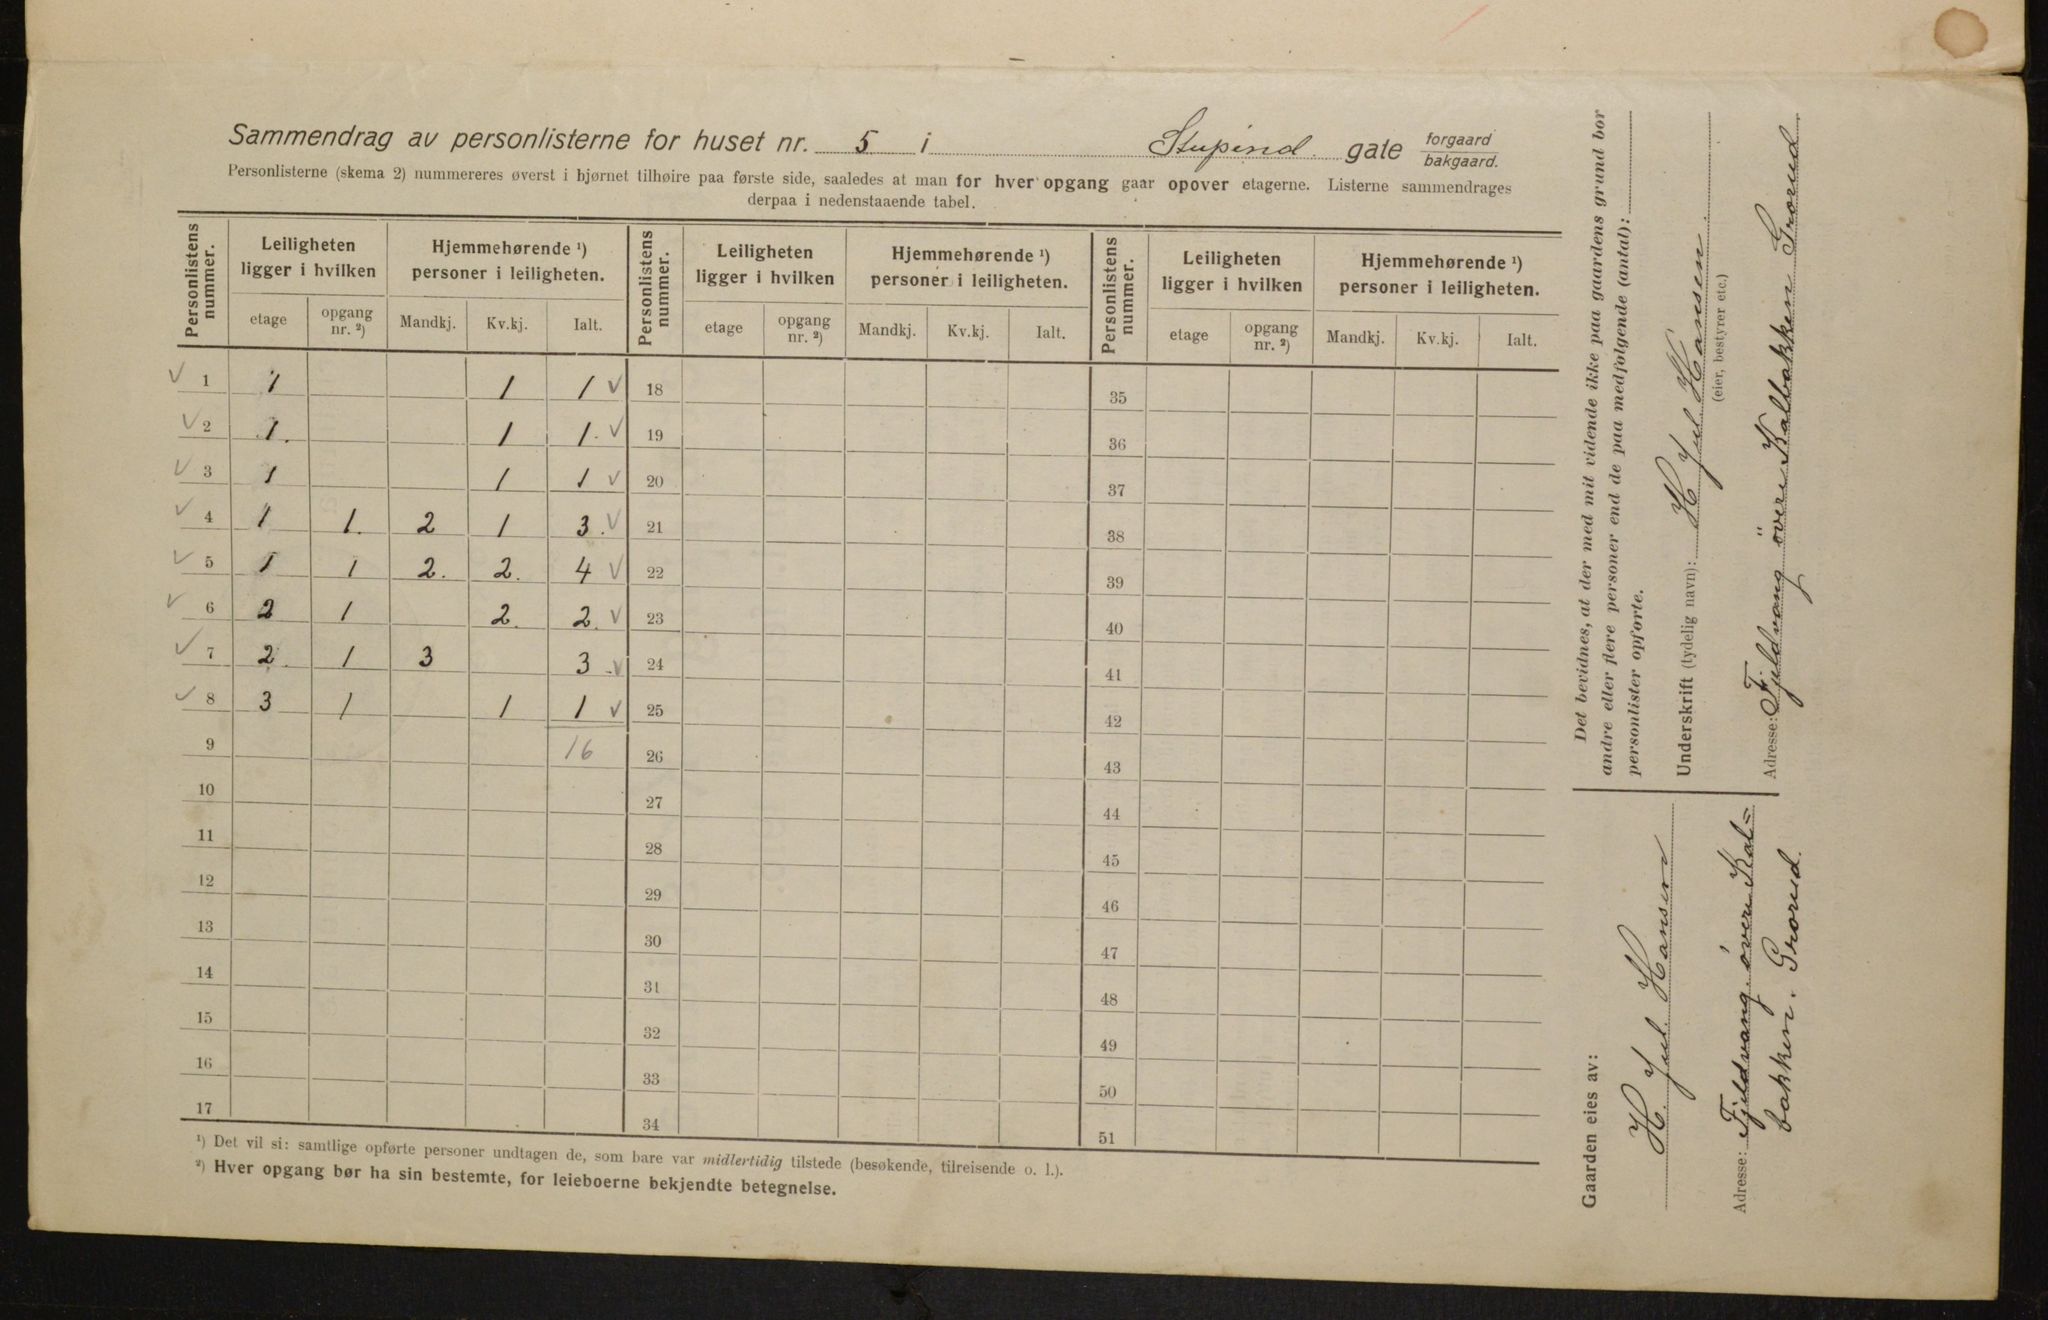 Sammendrag av personlisterne for huset nr. 5 i Stupind. gate forgaard bakgaard.
Personlisterne (skema 2) nummereres øverst i hjørnet tilhøire paa første side, saaledes at man for hver opgang gaar opover etagerne. Listerne sammendrages
derpaa i nedenstaaende tabel.
Personlistens nummer. Leiligheten ligger i hvilken Hjemmehørende ¹) personer i leiligheten. Personlistens nummer. Leiligheten ligger i hvilken Hjemmehørende ¹) personer i leiligheten. Personlistens nummer. Leiligheten ligger i hvilken Hjemmehørende ¹) personer i leiligheten.
etage opgang nr. ²) Mandkj. Kv.kj. Ialt. etage opgang nr. ²) Mandkj. Kv.kj. Ialt. etage opgang nr. ²) Mandkj. Kv.kj. Ialt.
✓ 1 1 1 1 ✓ 18 35
✓ 2 1. 1 1. ✓ 19 36
✓ 3 1 1 1 ✓ 20 37
✓ 4 1 1. 2 1 3. ✓ 21 38
✓ 5 1 1 2. 2. 4 ✓ 22 39
✓ 6 2 1 2. 2. ✓ 23 40
✓ 7 2. 1 3 3. ✓ 24 41
✓ 8 3 1 1 1 ✓ 25 42
9 16 26 43
10 27 44
11 28 45
12 29 46
13 30 47
14 31 48
15 32 49
16 33 50
17 34 51
¹) Det vil si: samtlige opførte personer undtagen de, som bare var midlertidig tilstede (besøkende, tilreisende o. l.).
²) Hver opgang bør ha sin bestemte, for leieboerne bekjendte betegnelse.
Det bevidnes, at der med mit vidende ikke paa gaardens grund bor
andre eller flere personer end de paa medfølgende (antal):
personlister opførte.
Underskrift (tydelig navn): H Jul Hansen.
(eier, bestyrer etc.)
Adresse: Fjeldvang övere Kalbakken Grorud
Gaarden eies av:
H. Jul. Hansen
Adresse: Fjeldvang. övere Kal=
bakken. Grorud.